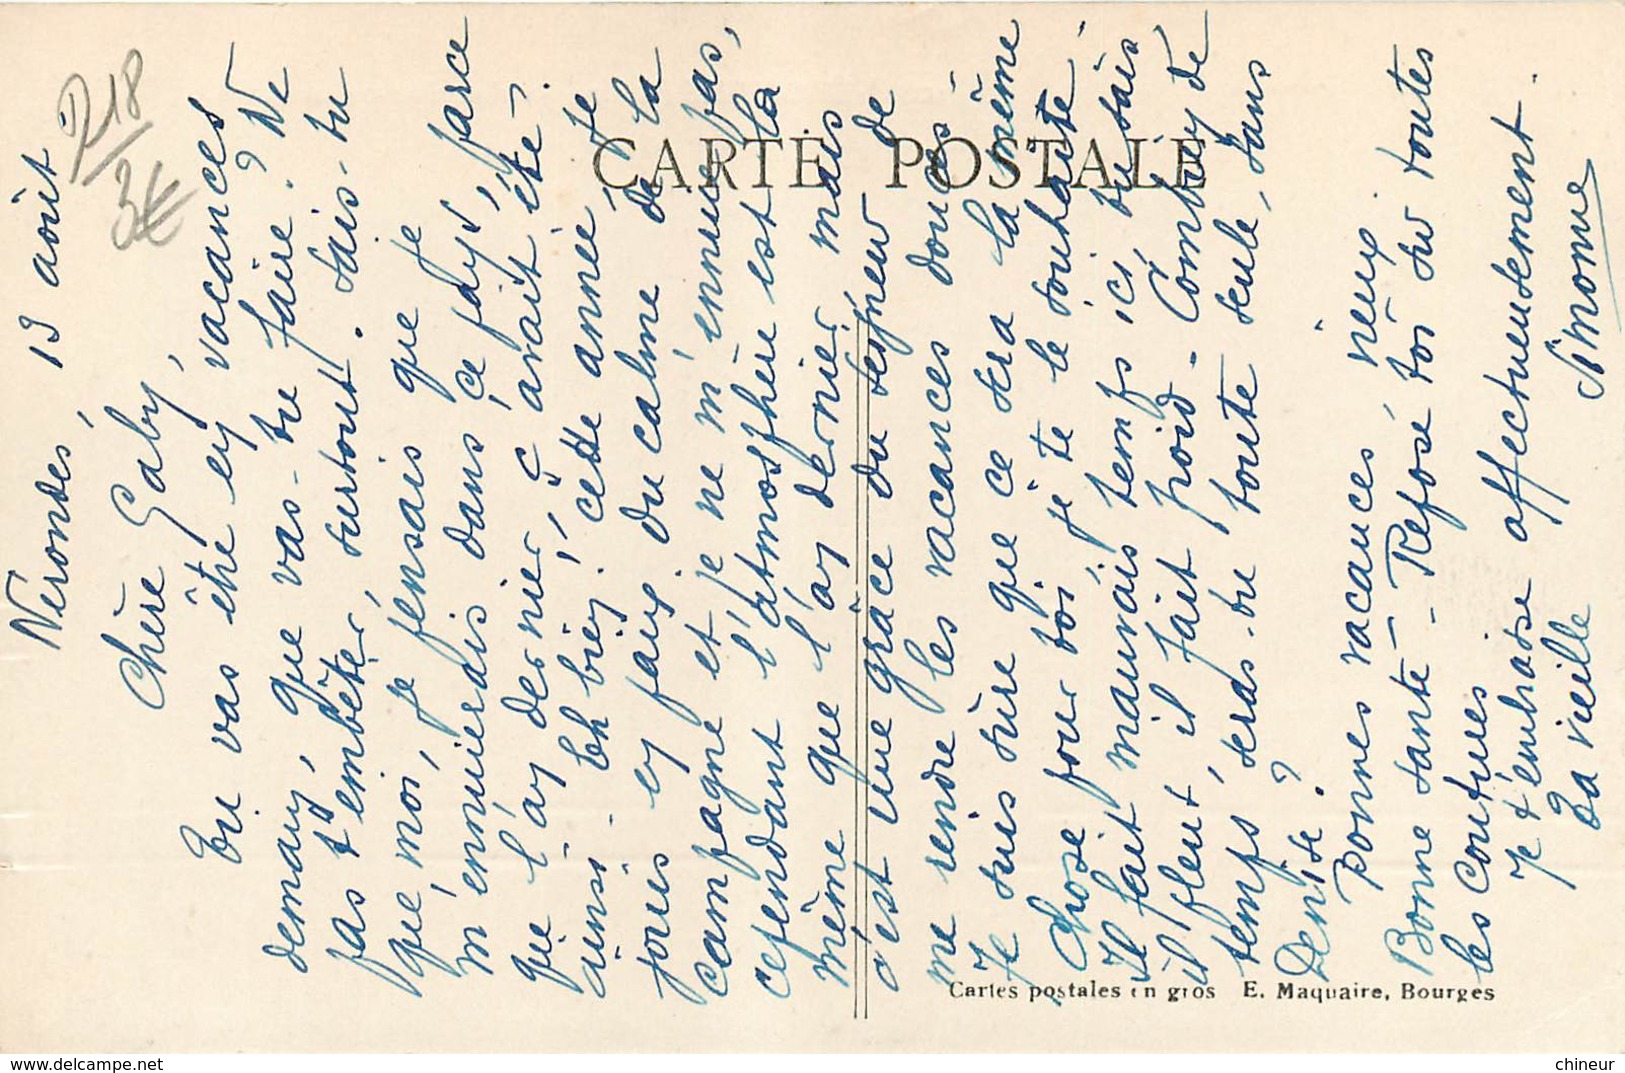 Nérondes, 13 août
Chère Gaby,
Tu vas être en vacances
demain, que vas-tu faire ? Ne
pas t'embêter, surtout. Sais-tu
que moi, je pensais que je
m'ennuierais dans ce pays, parce
que l'an dernier, ç'avait été
ainsi - Eh bien ! cette année, je
jouis en paix du calme de la
campagne et je ne m'ennuie pas,
cependant l'atmosphère est la
même que l'an dernier mais
c'est une grâce du Seigneur de
me rendre les vacances douces
Je suis sûre que ce sera la même
chose pour toi je te le souhaite
Il fait mauvais temps ici, tu sais
il pleut, il fait froid - Combien de
temps seras-tu toute seule, sans
Denise ?
Bonnes vacances, vieux
Bonne santé - Repose toi sur toutes
les coutures
Je t'embrasse affectueusement.
Ta vieille
Simone
CARTE POSTALE
Cartes postales en gros E. Maquaire, Bourges
R18
3€
www.delcampe.net
chineur